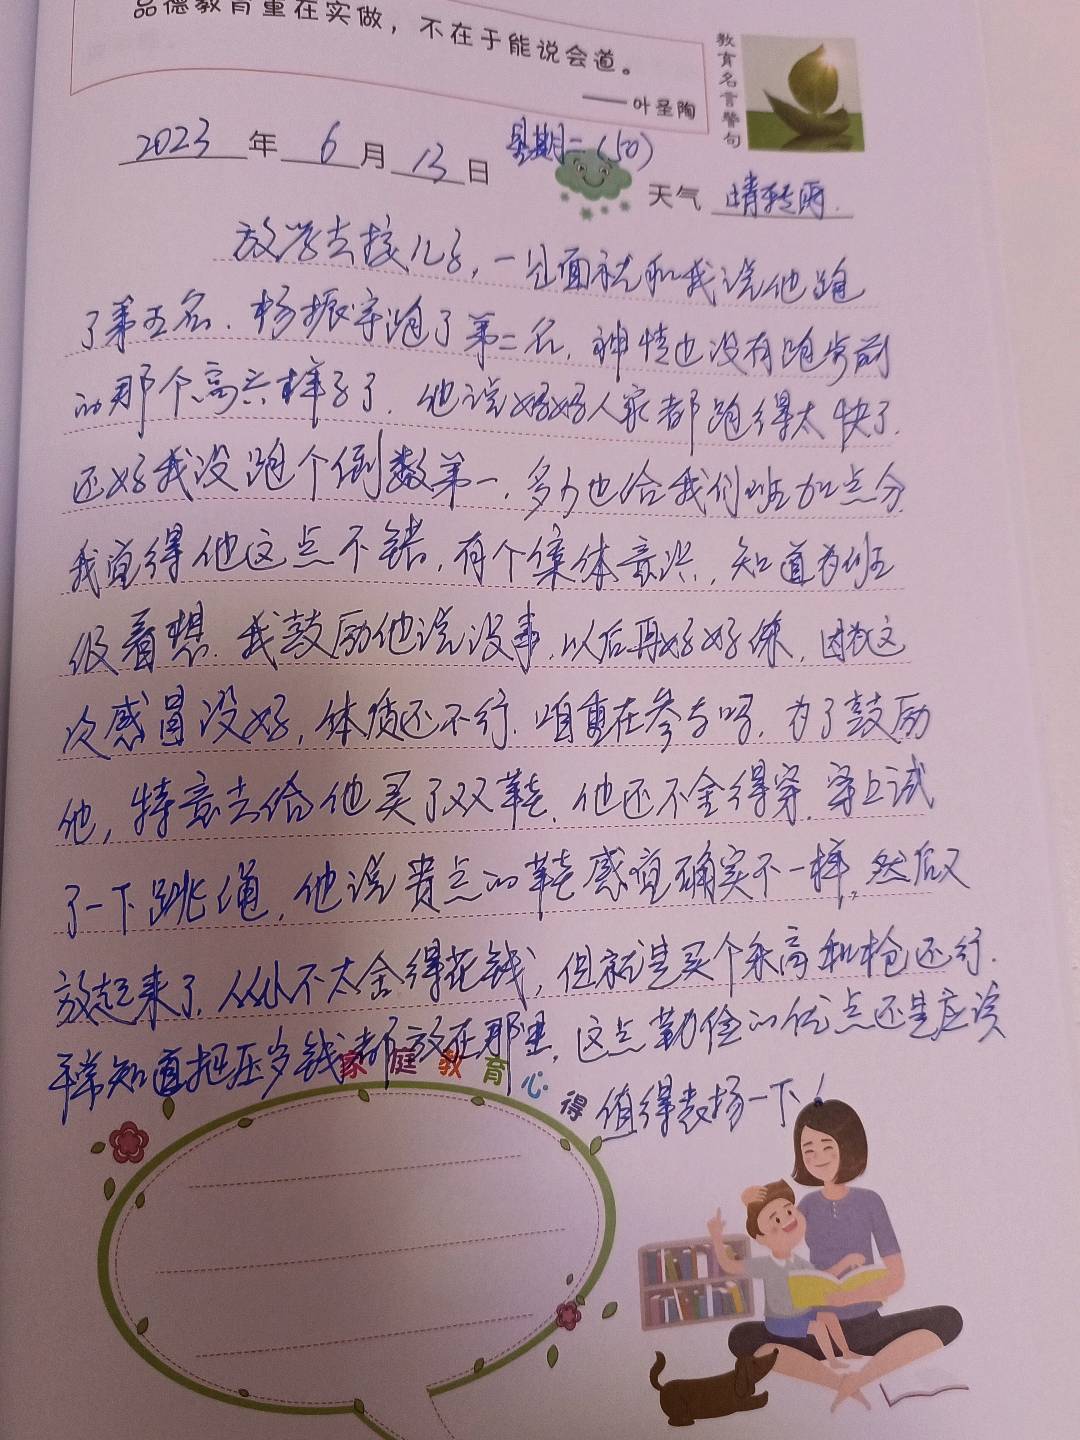 品德教育重在实做，不在于能说会道。
——叶圣陶
教育名言警句
2023年6月13日 星期二（50）
天气 晴转雨.
放学去接儿子，一见面就和我说他跑
了第五名.杨振宇跑了第二名.神情也没有跑步前
的那个高兴样子了.他说好好人家都跑得太快了.
还好我没跑个倒数第一.多少也给我们班加点分.
我觉得他这点不错.有个集体意识.知道为班
级着想.我鼓励他说没事.以后再好好练，因为这
次感冒没好，体质还不行.咱重在参与吗.为了鼓励
他，特意去给他买了双鞋.他还不舍得穿.穿上试
了一下跳绳，他说贵点的鞋感觉确实不一样.然后又
放起来了.从小不太舍得花钱，但就是买个乐高和枪还行.
平常知道把压岁钱都放在那里，这点勤俭的优点还是应该
值得表扬一下！
家庭教育心得